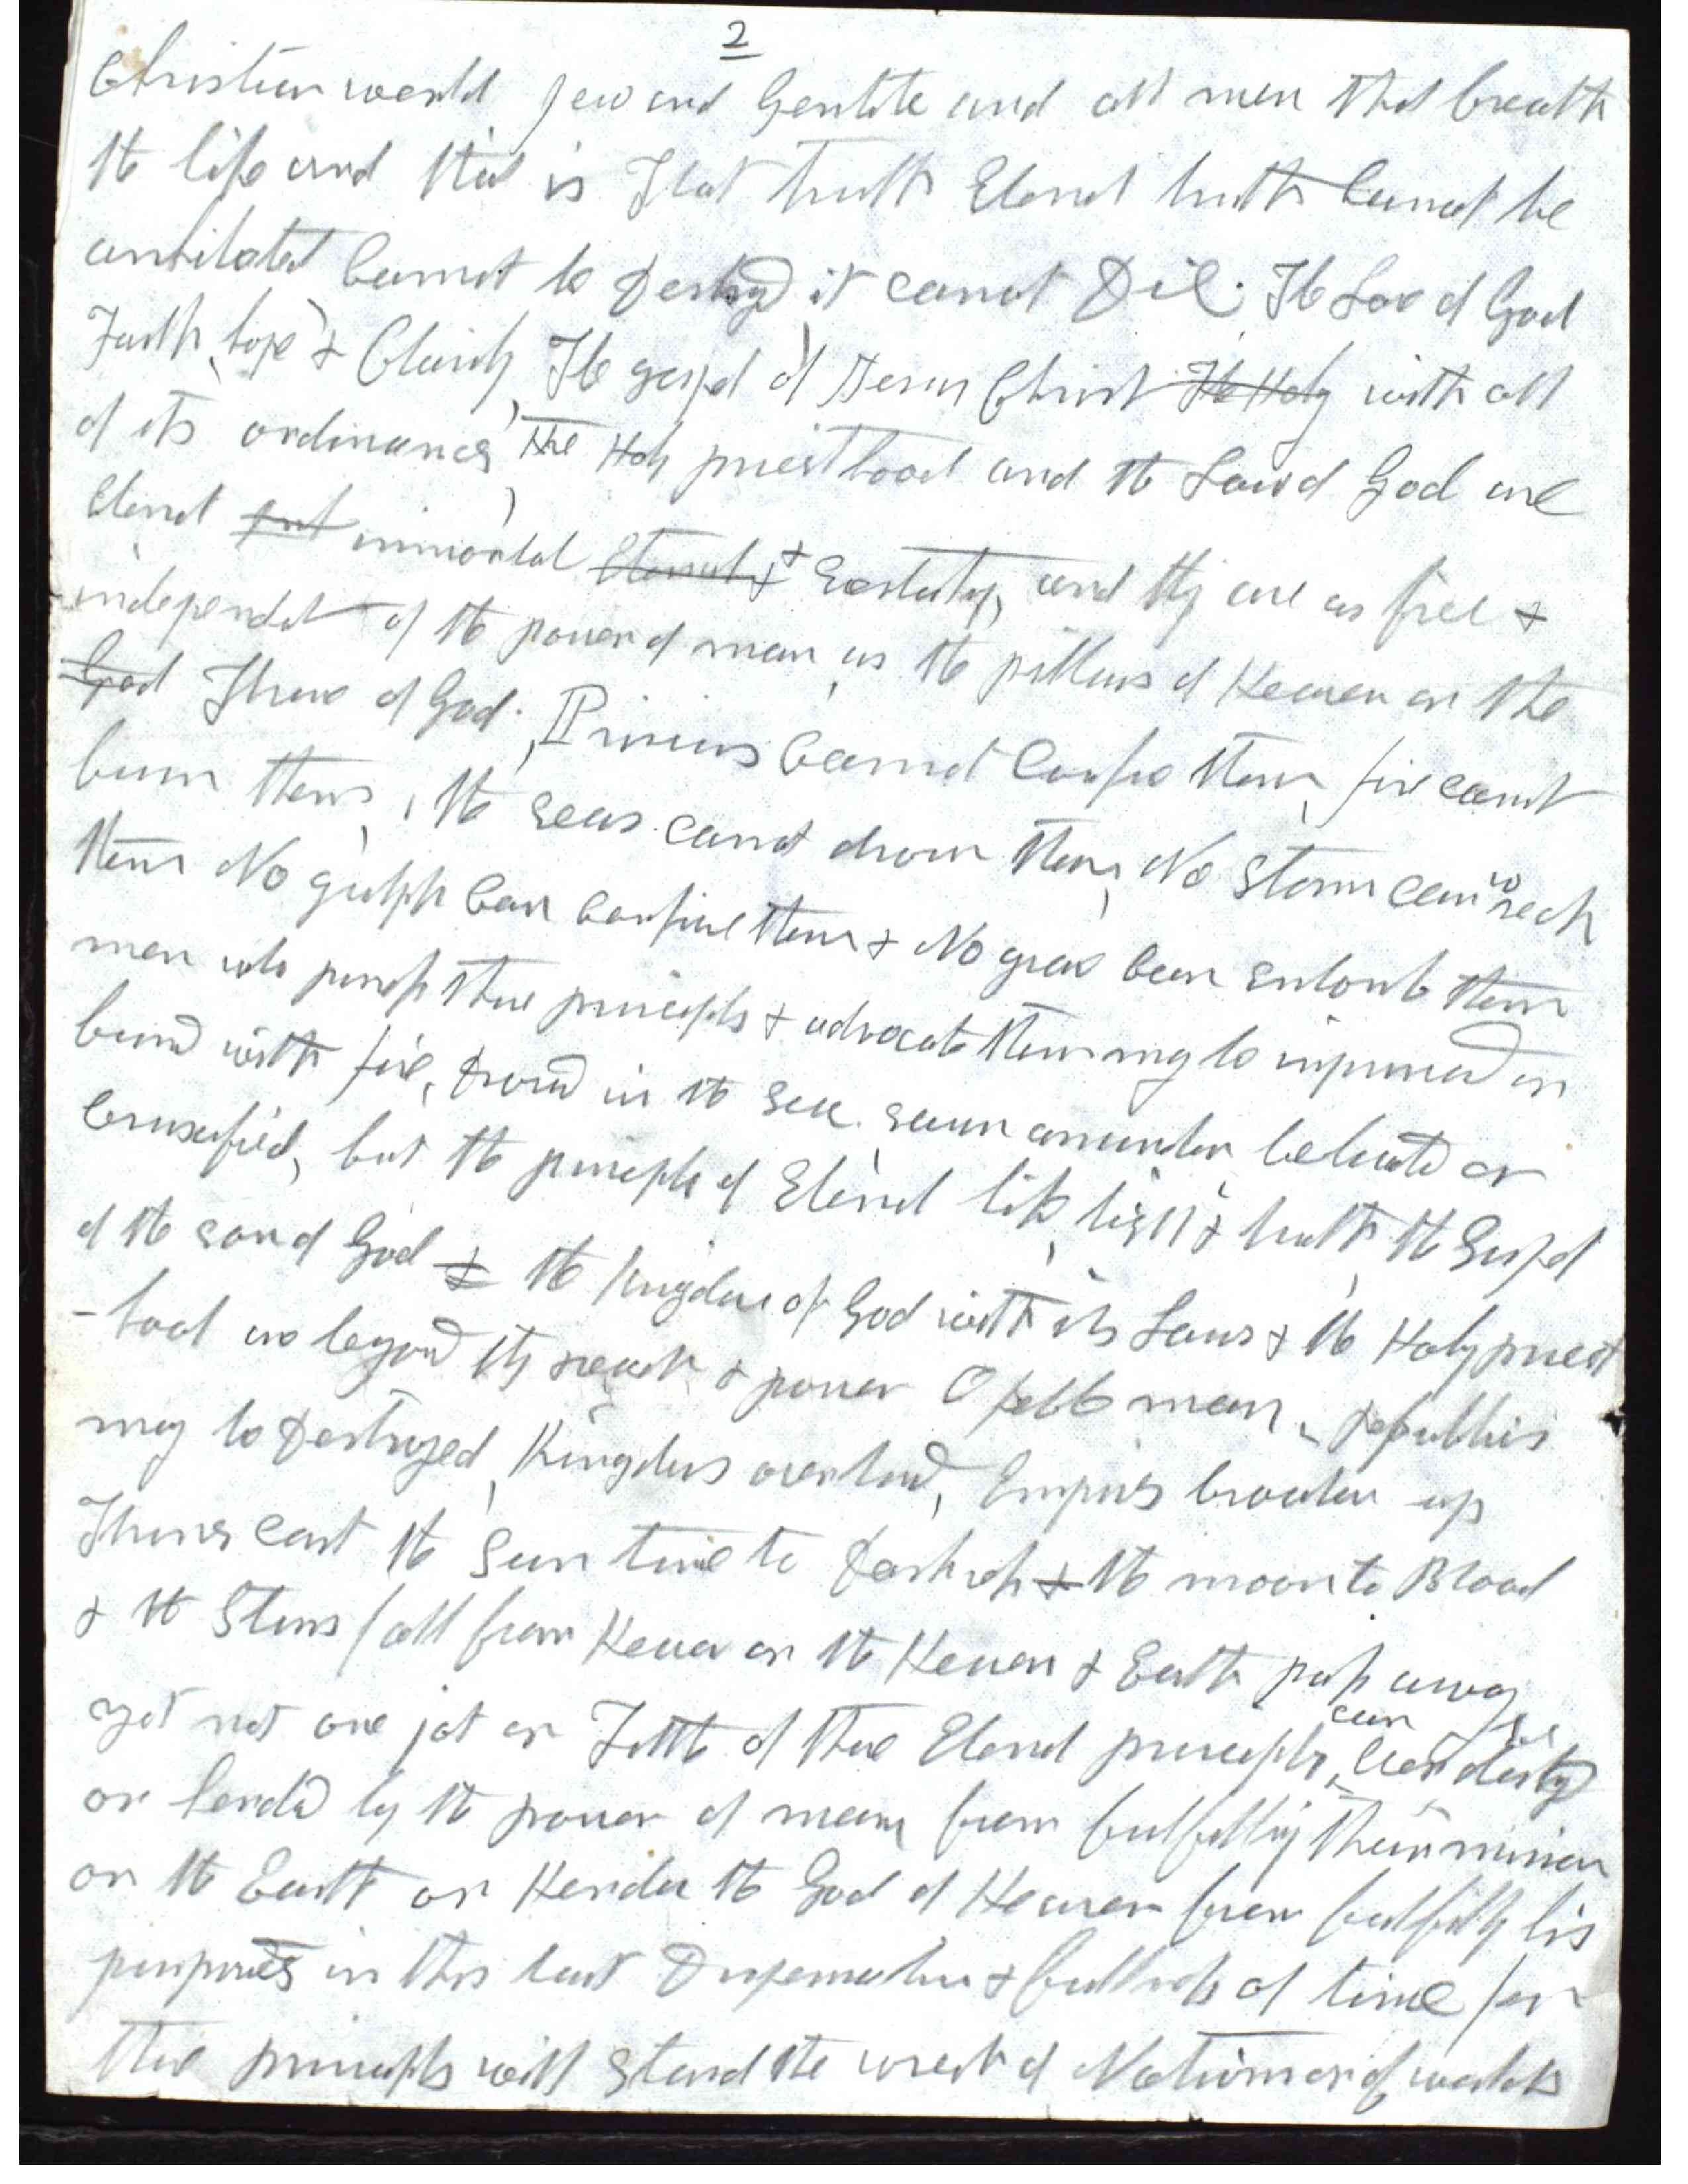 2
Christian world Jew and Gentile and all men that breath
the life and that is That truth Eternal truth Cannot be
anihilated Cannot be Destroyed it cannot Die. The Love of God
Faith, hope & Charity, The gospel of Jesus Christ The Holy with all
of its ordinances, the Holy priesthood and the Laws of God are
Eternal immortal Eternal & & Everlasting, and they are as free &
independet of the power of man as the pillars of Heaven or the
God Throne of God. Prisons Cannot Confine them, fire cannot
burn them, the seas cannot drown them, No storm can wreck
them No gulph Can confine them & No grave can entomb them
men who possess these principls & advocate them may be imprisoned or
burned with fire, Drowned in the sea, sawn assunder, beheaded or
Crusified, but the principle of Eternal life, light & truth, the Gospel
of the son of God & the kingdom of God with its Laws & the Holy priest
-hood are beyond the reach & power of feeble man, Republics
may be Destroyed, Kingdoms overthrown, Empires broaken up
Thrones cast the Sun turned to Darkness & the moon to Blood
& the Stars fall from Heaven or the Heaven & Earth pass away
yet not one jot or Tittle of these Eternal principls, can be destroyed
or henderd by the power of man from fulfilling their mission
on the Earth or Hender the God of Heaven from fulfilling his
purposes in this last Dispensation & fullness of time for
these principls will stand the wreck of Nations or of worlds